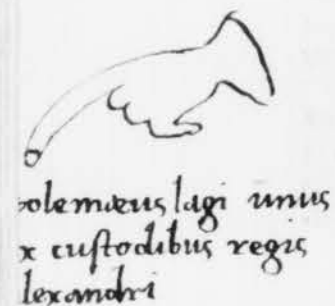 olemæus lagi unus
x custodibus regis
lexandri